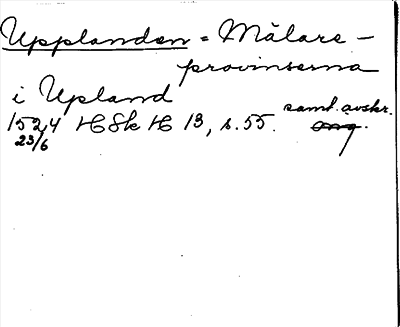 Upplanden = Mälare-
provinserna
i Upland
1524 HSkH 13, s. 55. samt. avskr.
23/6 orig.